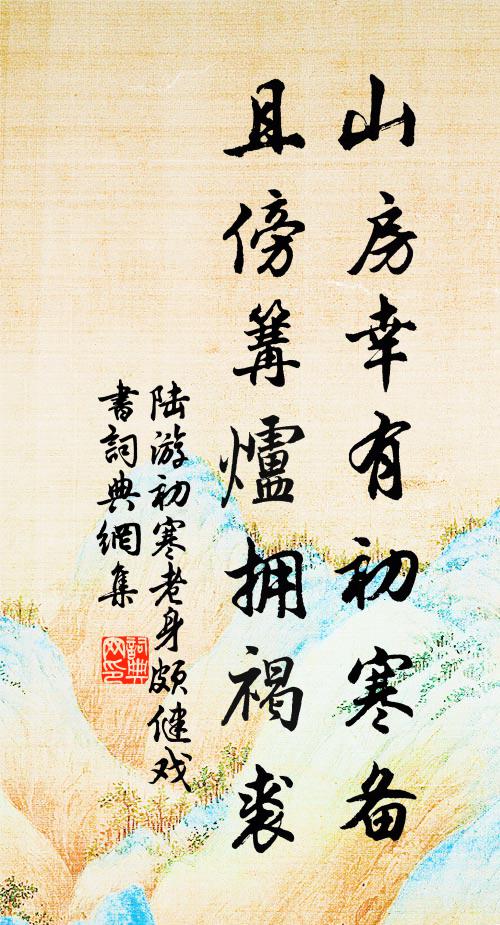 山房幸有初寒备
且傍篝爐拥褐裘
陆游初寒老身颇健戏
書詞典網集
詞典